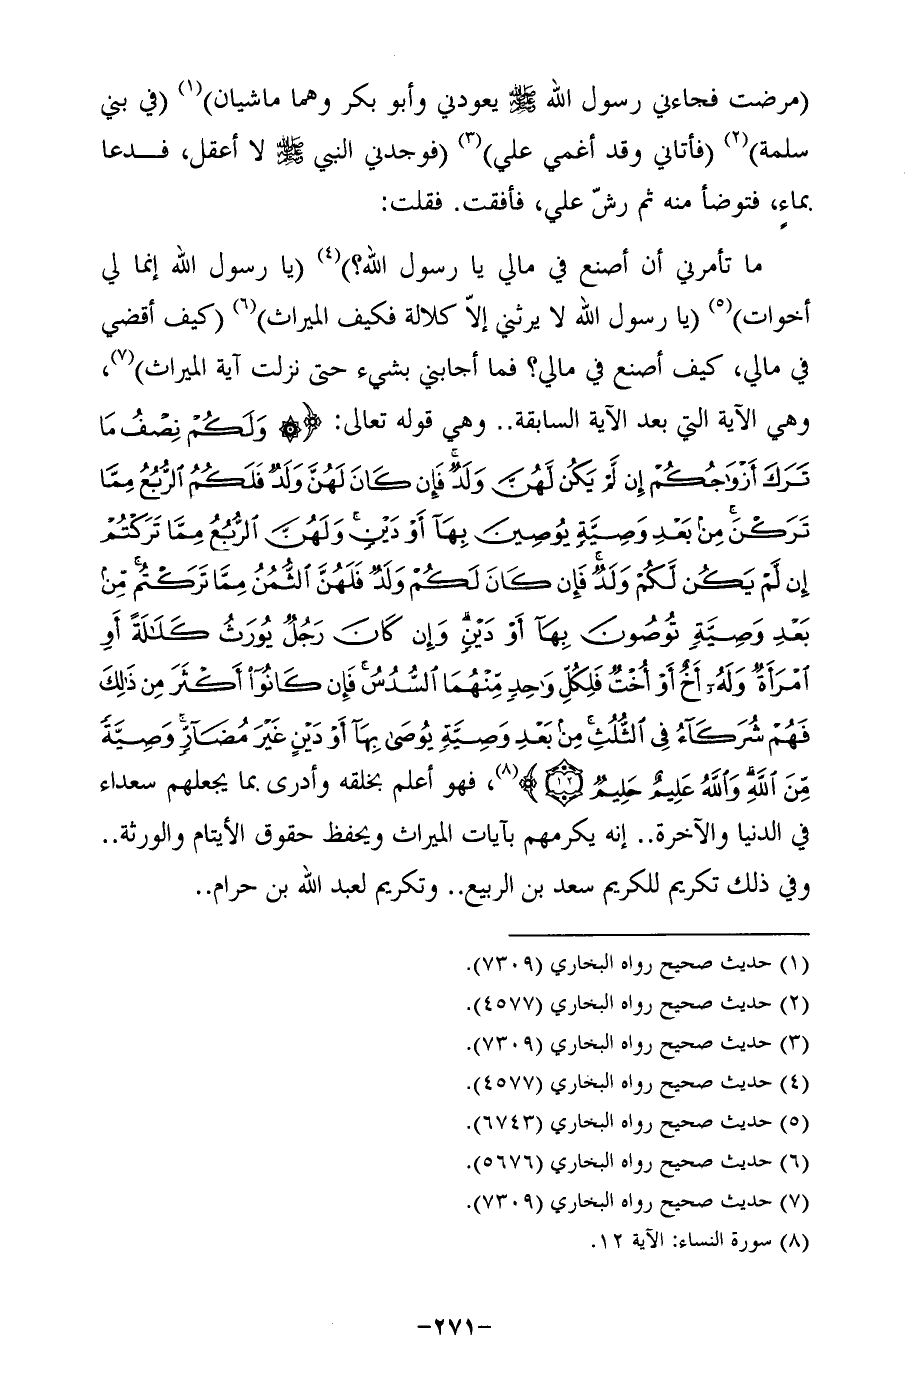 (مرضت فجاءني رسول الله ﷺ يعودني وأبو بكر وهما ماشيان)(١) (في بني
سلمة)(٢) (فأتاني وقد أغمي علي)(٣) (فوجدني النبي ﷺ لا أعقل، فـــدعا
بماءٍ، فتوضأ منه ثم رشّ علي، فأفقت. فقلت:
ما تأمرني أن أصنع في مالي يا رسول الله؟)(٤) (يا رسول الله إنما لي
أخوات)(٥) (يا رسول الله لا يرثني إلاّ كلالة فكيف الميراث)(٦) (كيف أقضي
في مالي، كيف أصنع في مالي؟ فما أجابني بشيء حتى نزلت آية الميراث)(٧)،
وهي الآية التي بعد الآية السابقة.. وهي قوله تعالى: ﴿۞ وَلَكُمۡ نِصۡفُ مَا
تَرَكَ أَزۡوَٰجُكُمۡ إِن لَّمۡ يَكُن لَّهُنَّ وَلَدٞۚ فَإِن كَانَ لَهُنَّ وَلَدٞ فَلَكُمُ ٱلرُّبُعُ مِمَّا
تَرَكۡنَۚ مِنۢ بَعۡدِ وَصِيَّةٖ يُوصِينَ بِهَآ أَوۡ دَيۡنٖۚ وَلَهُنَّ ٱلرُّبُعُ مِمَّا تَرَكۡتُمۡ
إِن لَّمۡ يَكُن لَّكُمۡ وَلَدٞۚ فَإِن كَانَ لَكُمۡ وَلَدٞ فَلَهُنَّ ٱلثُّمُنُ مِمَّا تَرَكۡتُمۚ مِّنۢ
بَعۡدِ وَصِيَّةٖ تُوصُونَ بِهَآ أَوۡ دَيۡنٖۗ وَإِن كَانَ رَجُلٞ يُورَثُ كَلَٰلَةً أَوِ
ٱمۡرَأَةٞ وَلَهُۥٓ أَخٌ أَوۡ أُخۡتٞ فَلِكُلِّ وَٰحِدٖ مِّنۡهُمَا ٱلسُّدُسُۚ فَإِن كَانُوٓاْ أَكۡثَرَ مِن ذَٰلِكَ
فَهُمۡ شُرَكَآءُ فِي ٱلثُّلُثِۚ مِنۢ بَعۡدِ وَصِيَّةٖ يُوصَىٰ بِهَآ أَوۡ دَيۡنٍ غَيۡرَ مُضَآرّٖۚ وَصِيَّةٗ
مِّنَ ٱللَّهِۗ وَٱللَّهُ عَلِيمٌ حَلِيمٞ ١٢﴾(٨)، فهو أعلم بخلقه وأدرى بما يجعلهم سعداء
في الدنيا والآخرة.. إنه يكرمهم بآيات الميراث ويحفظ حقوق الأيتام والورثة..
وفي ذلك تكريم للكريم سعد بن الربيع.. وتكريم لعبد الله بن حرام..
(١) حديث صحيح رواه البخاري (٧٣٠٩).
(٢) حديث صحيح رواه البخاري (٤٥٧٧).
(٣) حديث صحيح رواه البخاري (٧٣٠٩).
(٤) حديث صحيح رواه البخاري (٤٥٧٧).
(٥) حديث صحيح رواه البخاري (٦٧٤٣).
(٦) حديث صحيح رواه البخاري (٥٦٧٦).
(٧) حديث صحيح رواه البخاري (٧٣٠٩).
(٨) سورة النساء: الآية ١٢.
-٢٧١-